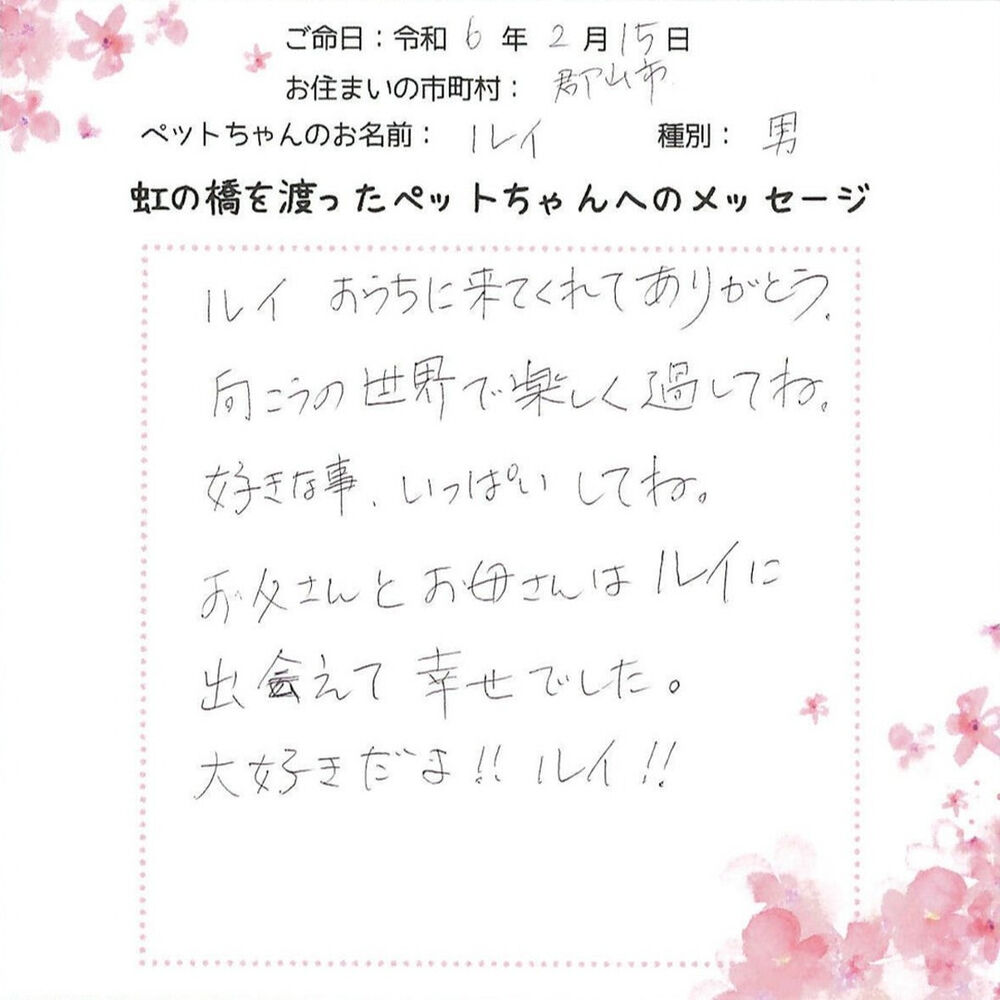 ご命日：令和 6 年 2 月 15 日
お住まいの市町村： 郡山市
ペットちゃんのお名前： ルイ 種別： 男
虹の橋を渡ったペットちゃんへのメッセージ
ルイ おうちに来てくれてありがとう。
向こうの世界で楽しく過してね。
好きな事、いっぱいしてね。
お父さんとお母さんは ルイに
出会えて 幸せでした。
大好きだよ!! ルイ!!